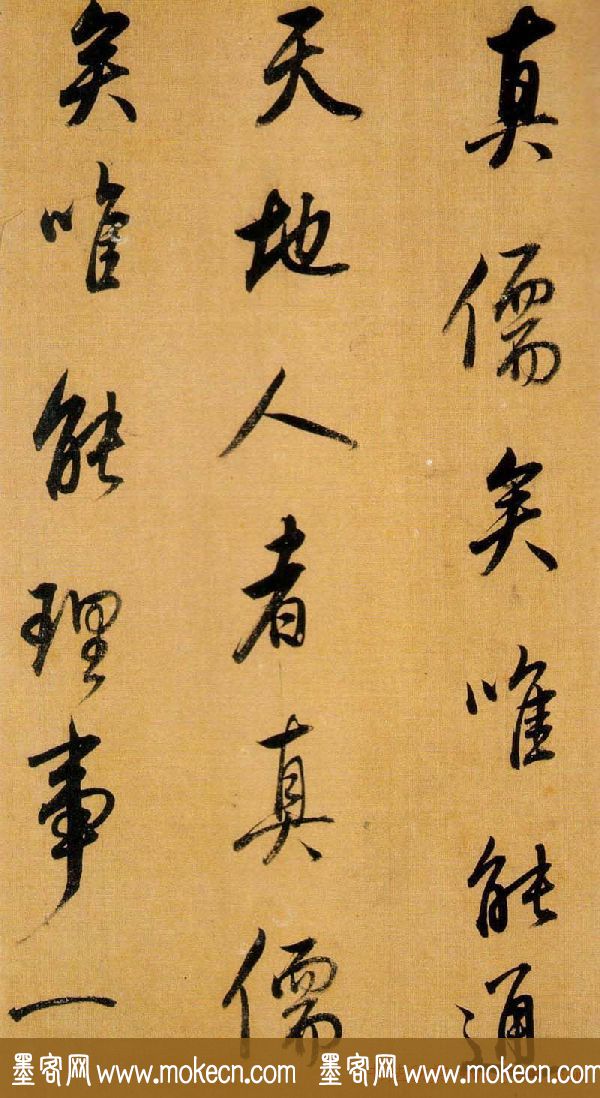 真儒矣唯能通
天地人者真儒
矣唯能理事一
墨客网 www.mokecn.com 墨客网 www.mokecn.com